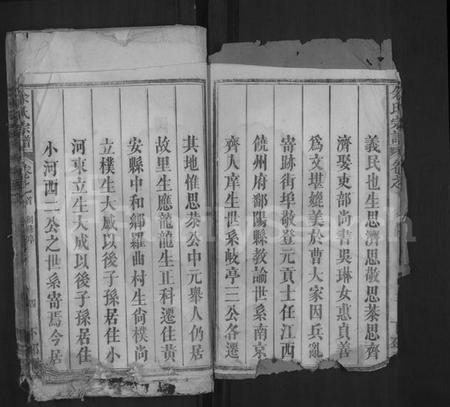 義民也生思濟思敬思茶思齊
濟娶吏部尚書吳琳女惠貞善
為文堪繼美於曹大家因兵亂
寄跡街埠敬登元貢士任江西
饒州府鄱陽縣教諭世系南京
齊人庠生世系岐亭二公各遷
其地惟思茶公中元舉人仍居
故里生應龍龍生正科遷住黃
安縣中和鄉羅曲村生尚樸尚
立樸生大威以後子孫居住小
河東立生大成以後子孫居住
小河西二公之世系寄焉今居
氏宗譜